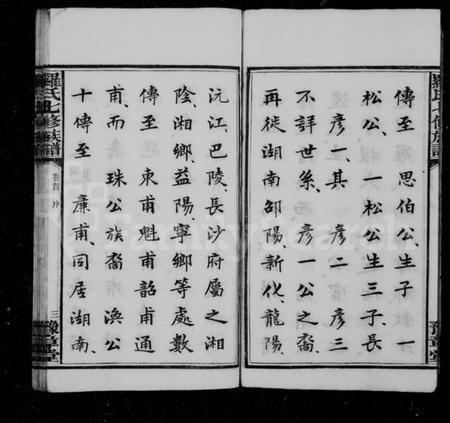 傳至 思伯公生子 一
松公、一松公生三子、長
彥一、其 彥二 彥三
不詳世系、彥一公之裔、
再徙湖南邵陽、新化、龍陽
沅江、巴陵、長沙府屬之湘
陰、湘鄉、益陽、寧鄉等處、數
傳至 東甫魁甫韶甫通
甫、而 珠公族裔 渙公
十傳至 廉甫、同居湖南、
羅氏七修族譜
卷首 序
三
豫章堂
羅氏七修族譜
豫章堂